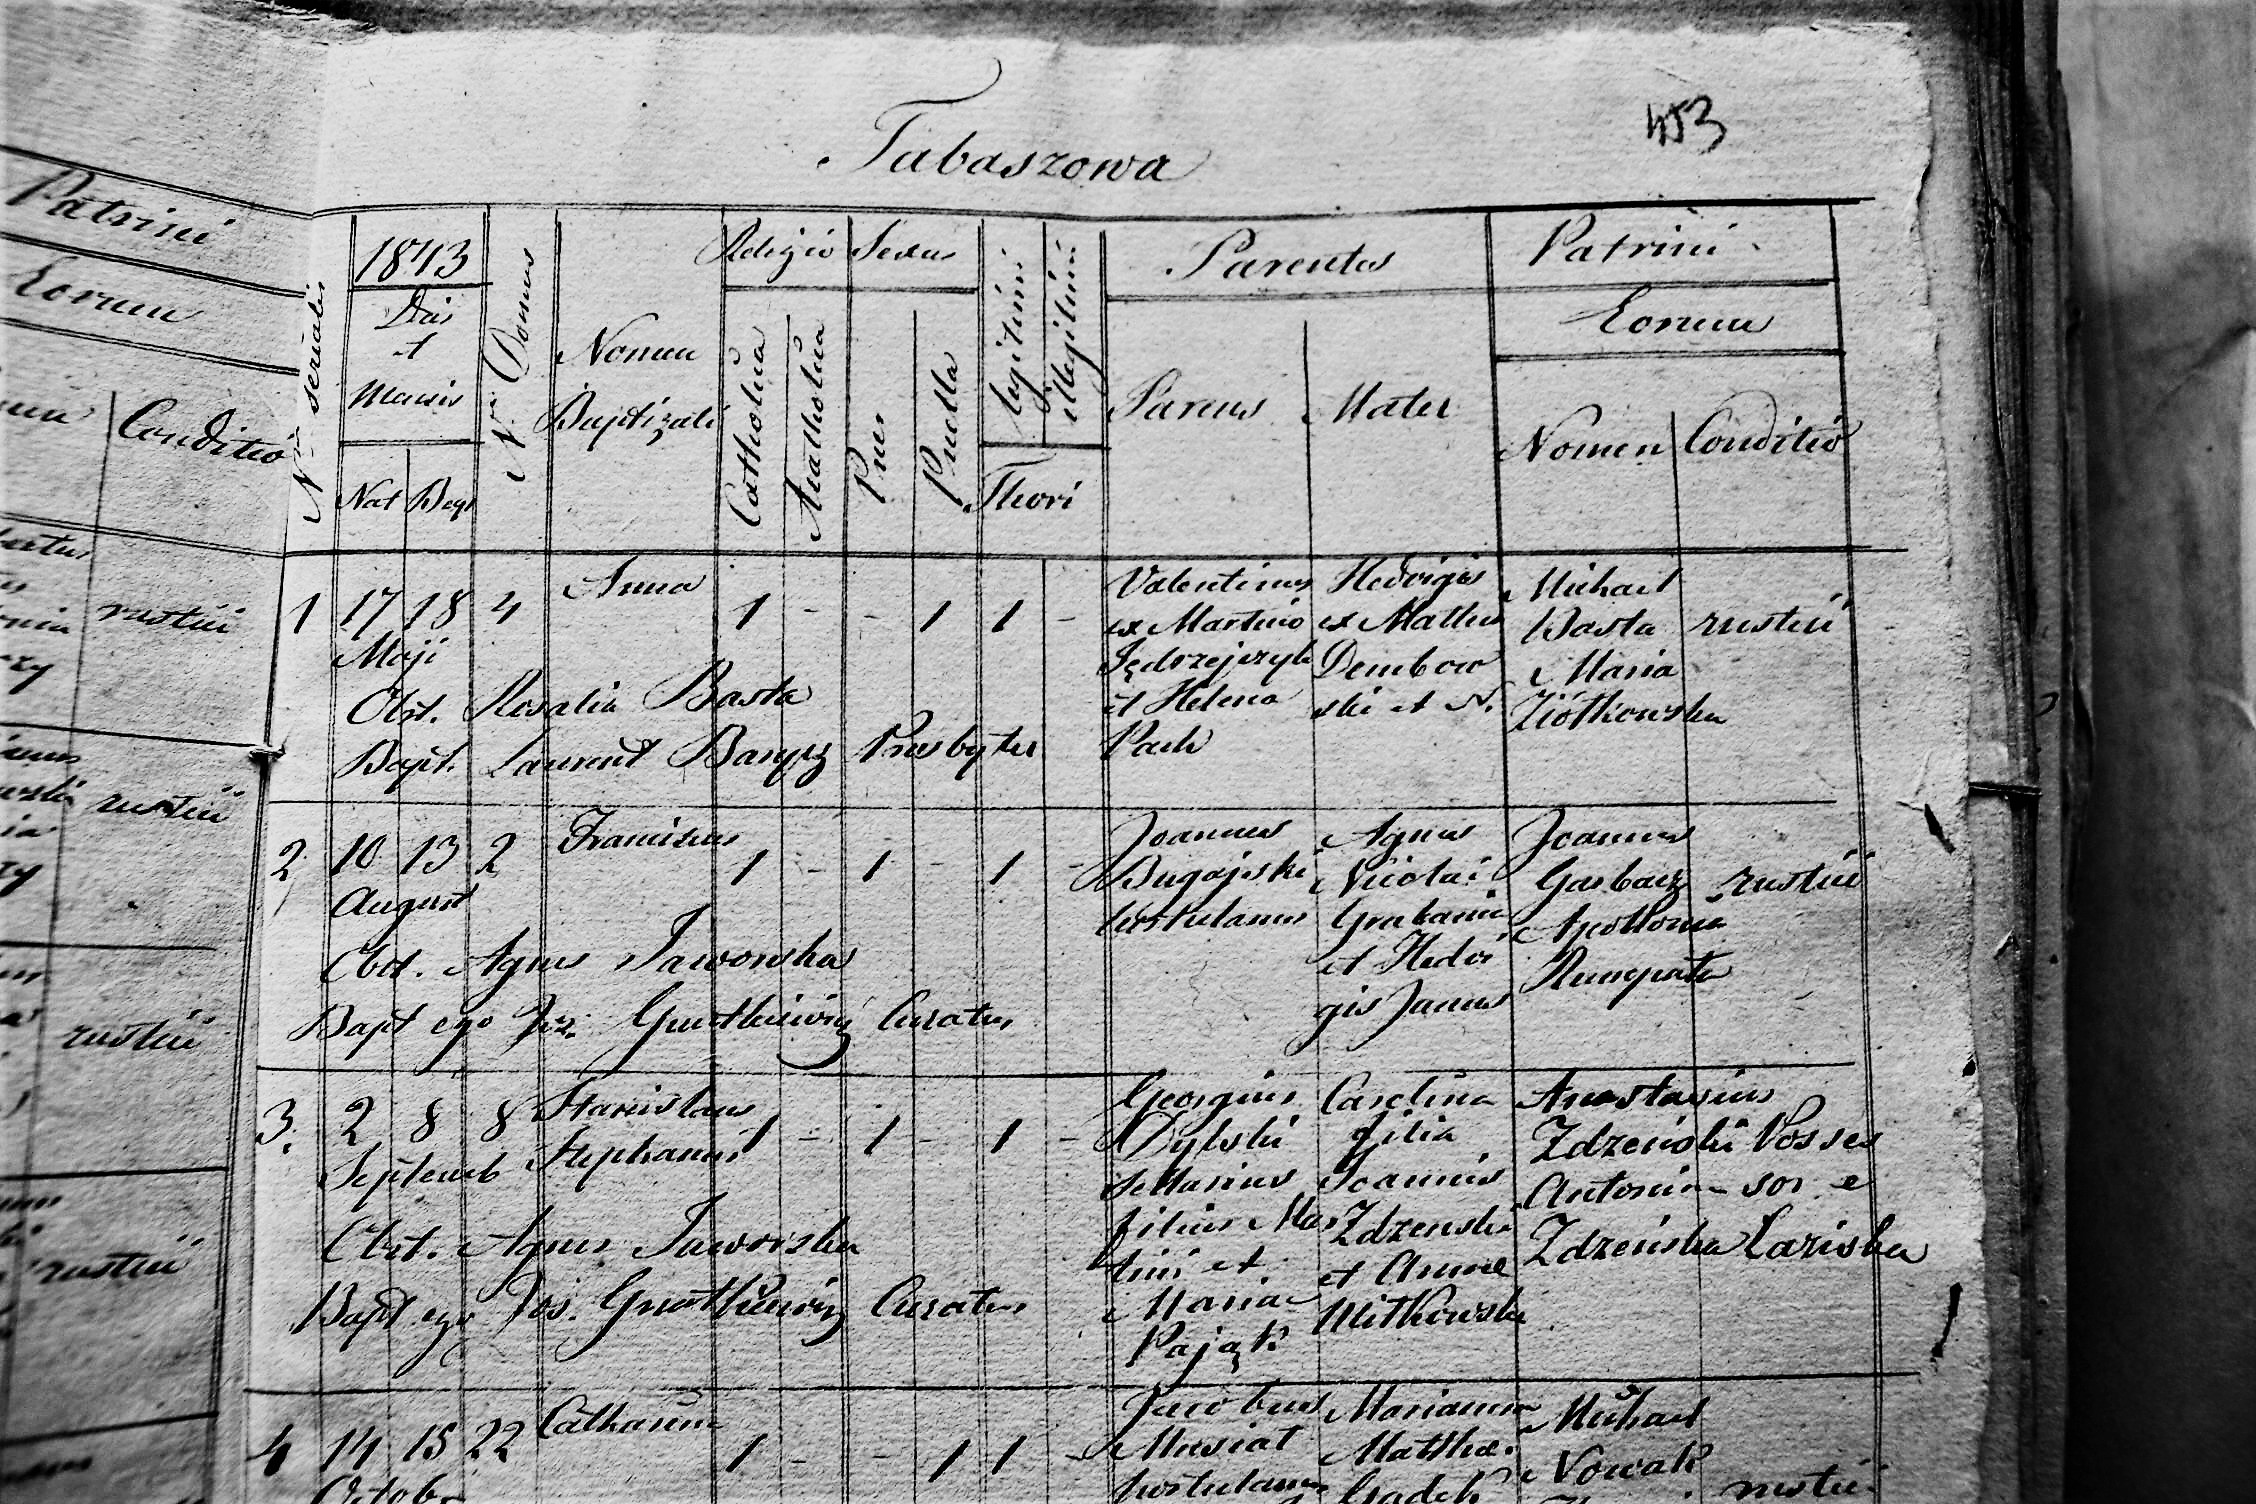 453
Tabaszowa
Patrini
Eorum
Conditio
rustici
rustici
rustici
rustici
Nrus serialis
1843
Dies
et
Mensis
Nat Bapt
Nrus Domus
Nomen
Baptizati
Religio
Catholica
Acatholica
Sexus
Puer
Puella
legitimi
illegitimi
Thori
Parentes
Parens
Mater
Patrini
Eorum
Nomen
Conditio
1 17 18 4 Anna 1 - - 1 1 -
Maji
Obst. Rosalia Basta
Bapt. Laurent Presbyter
Valentinus
ex Martino
Jędrzejczyk
et Helena
Pach
Hedvigis
ex Mathia
Dembow
ski et N.
Michael
Basta rustici
Maria
Ziółkowska
2 10 13 2 Franciscus 1 - 1 - 1 -
August
Obst. Agnes Jaworska
Bapt ego Jos. Gnutkiewicz Curatus
Joannes
Bugajski
hortulanus
Agnes
Nicolai
et Hedvi
gis Janus
Joannes
Garbacz rustici
Apollonia
3. 2 8 8 Stanislaus 1 - 1 - 1 -
Septemb Stephanus
Obst. Agnes Jaworska
Bapt ego Jos. Gnutkiewicz Curatus
Georgius
Dybski
filius Mar
tini et
Maria
Pająk
Carolina
filia
Joannis
Zdzenski
et Annae
Witkowska
Anastasius
Zdzeński Posses
Antonina sor e
Zdzeńska Laziska
4 14 15 22 Catharina 1 - - 1 1 -
Octobr
Jacobus
Musiał
hortulanus
Marianna
Mathiae
Gadek
Michael
Nowak
rustici